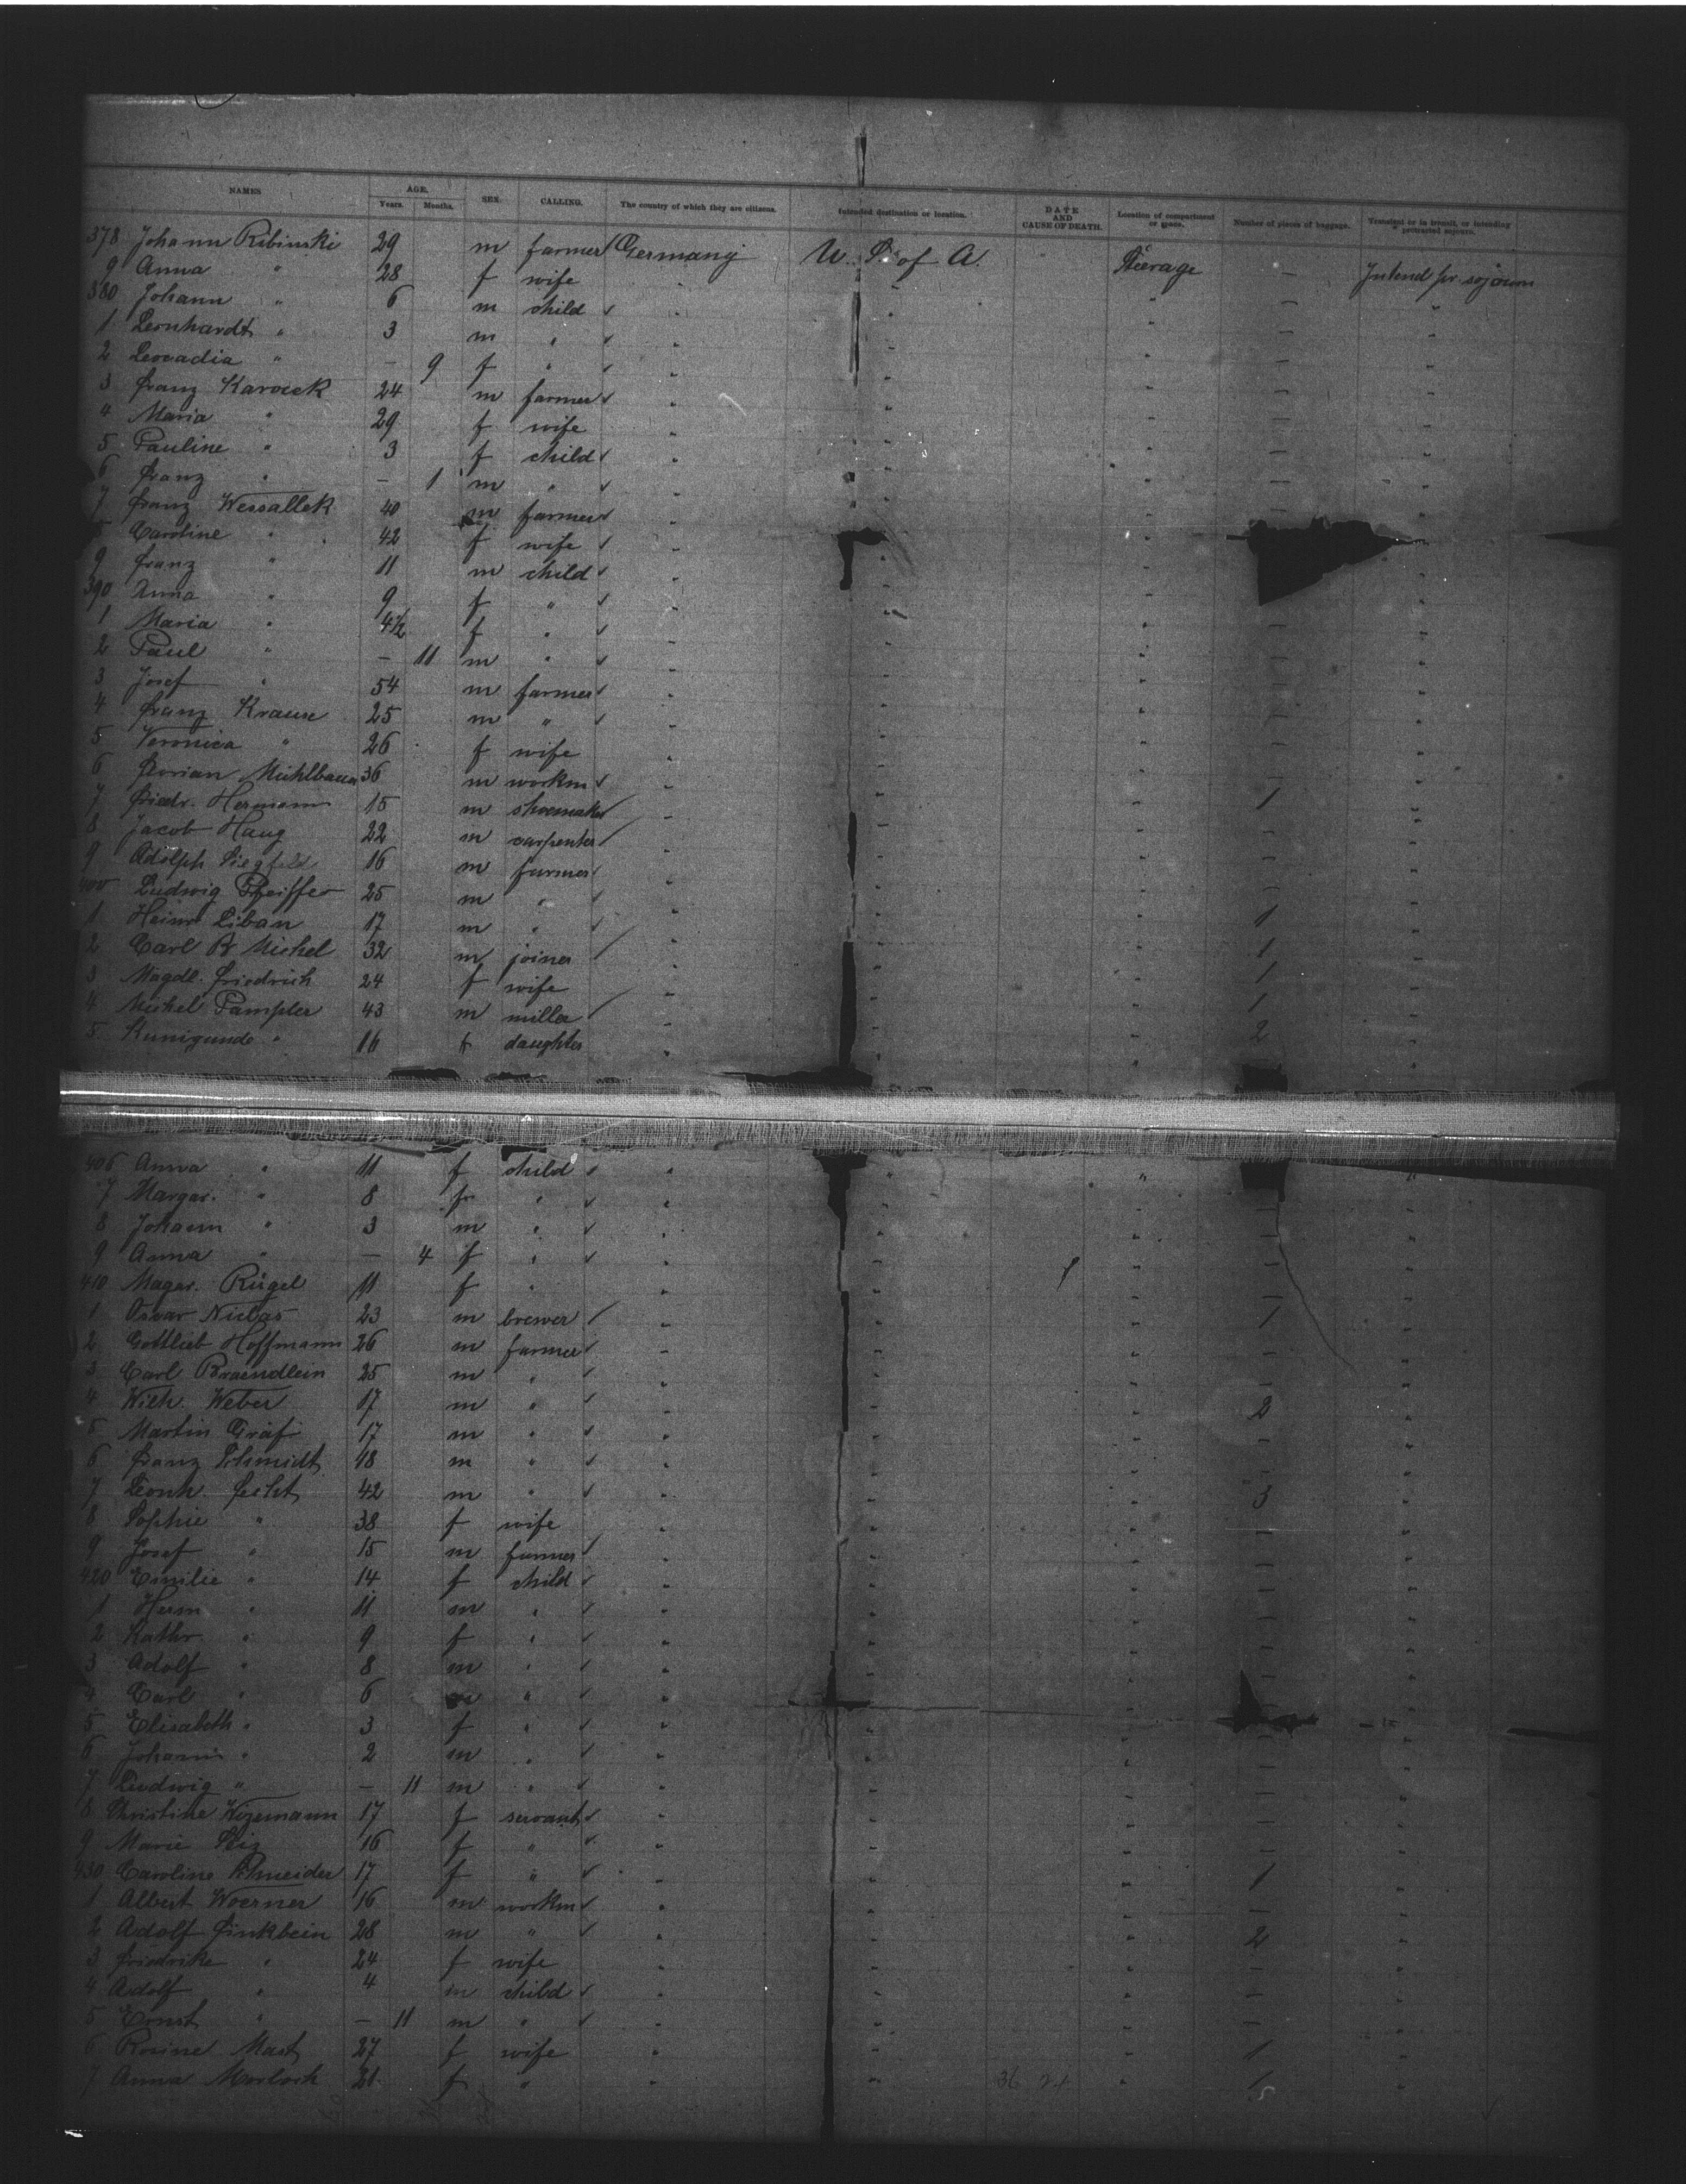 NAMES AGE. Years. Months. SEX. CALLING. The country of which they are citizens. Intended destination or location. DATE AND CAUSE OF DEATH. Location of compartment or space. Number of pieces of baggage. Transient or in transit, or intending protracted sojourn.
378 Johann Ribinski 29 m farmer Germany U. S. of A. Steerage - Intend pr. sojourn
9 Anna " 28 f wife " " " - "
380 Johann " 6 m child " " " - "
1 Leonhardt " 3 m " " " " - "
2 Leocadia " - 9 f " " " " - "
3 Franz 24 m farmer " " " - "
4 Maria " 29 f wife " " " - "
5 Pauline " 3 f child " " " - "
6 Franz " - 1 m " " " " - "
7 Franz Wessallek 40 m farmer " " " "
8 Caroline " 42 f wife " " " "
9 Franz " 11 m child " " " "
390 Anna " 9 f " " " " "
1 Maria " 4½ f " " " " - "
2 Paul " - 11 m " " " " - "
3 Josef " 54 m farmer " " " - "
4 Franz Krause 25 m " " " " - "
5 Veronica " 26 f wife " " " - "
6 Florian Mühlbauer 36 m workm " " " 1 "
7 Friedr. Hermann 15 m shoemaker " " " - "
8 Jacob Haug 22 m carpenter " " " - "
9 Adolph Siegfeld 16 m farmer " " " - "
400 Ludwig Pfeiffer 25 m " " " " 1 "
1 Heinr Liban 17 m " " " " 1 "
2 Carl B Michel 32 m joiner " " " 1 "
3 Magdl. Friedrich 24 f wife " " " 1 "
4 Michel Pampler 43 m miller " " " 2 "
5 Kunigunde " 16 f daughter " " " "
406 Anna " 11 f child " " " "
7 Margar. " 8 f " " " " - "
8 Johann " 3 m " " " " - "
9 Anna " - 4 f " " " " - "
410 Magar. Rügel 11 f " " " " - "
1 Oscar Niclas 23 m brewer " " " 1 "
2 Gottlieb Hoffmann 26 m farmer " " " - "
3 Carl Braendlein 25 m " " " " - "
4 Wilh. Weber 17 m " " " " 2 "
5 Martin Gräf 17 m " " " " - "
6 Franz Schmidt 48 m " " " " - "
7 Leonh Fecht 42 m " " " " 3 "
8 Sophie " 38 f wife " " " - "
9 Josef " 15 m farmer " " " - "
420 Emilie " 14 f child " " " - "
1 Herm " 11 m " " " " - "
2 Kathr. " 9 f " " " " - "
3 Adolf " 8 m " " " " - "
4 Carl " 6 m " " " " "
5 Elisabeth " 3 f " " " " - "
6 Johann " 2 m " " " " - "
7 Ludwig " - 11 m " " " " - "
8 Christine Wizemann 17 f servant " " " - "
9 Marie Seiz 16 f " " " " - "
430 Caroline Schneider 17 f " " " " 1 "
1 Albert Woerner 16 m workm " " " - "
2 Adolf Finkbein 28 m " " " " 2 "
3 Friedrike " 24 f wife " " " - "
4 Adolf " 4 m child " " " - "
5 Ernst " - 11 m " " " " - "
6 Rosine Mast 27 f wife " " " 1 "
7 Anna Morlock 21 f " " " 36 " 1 "